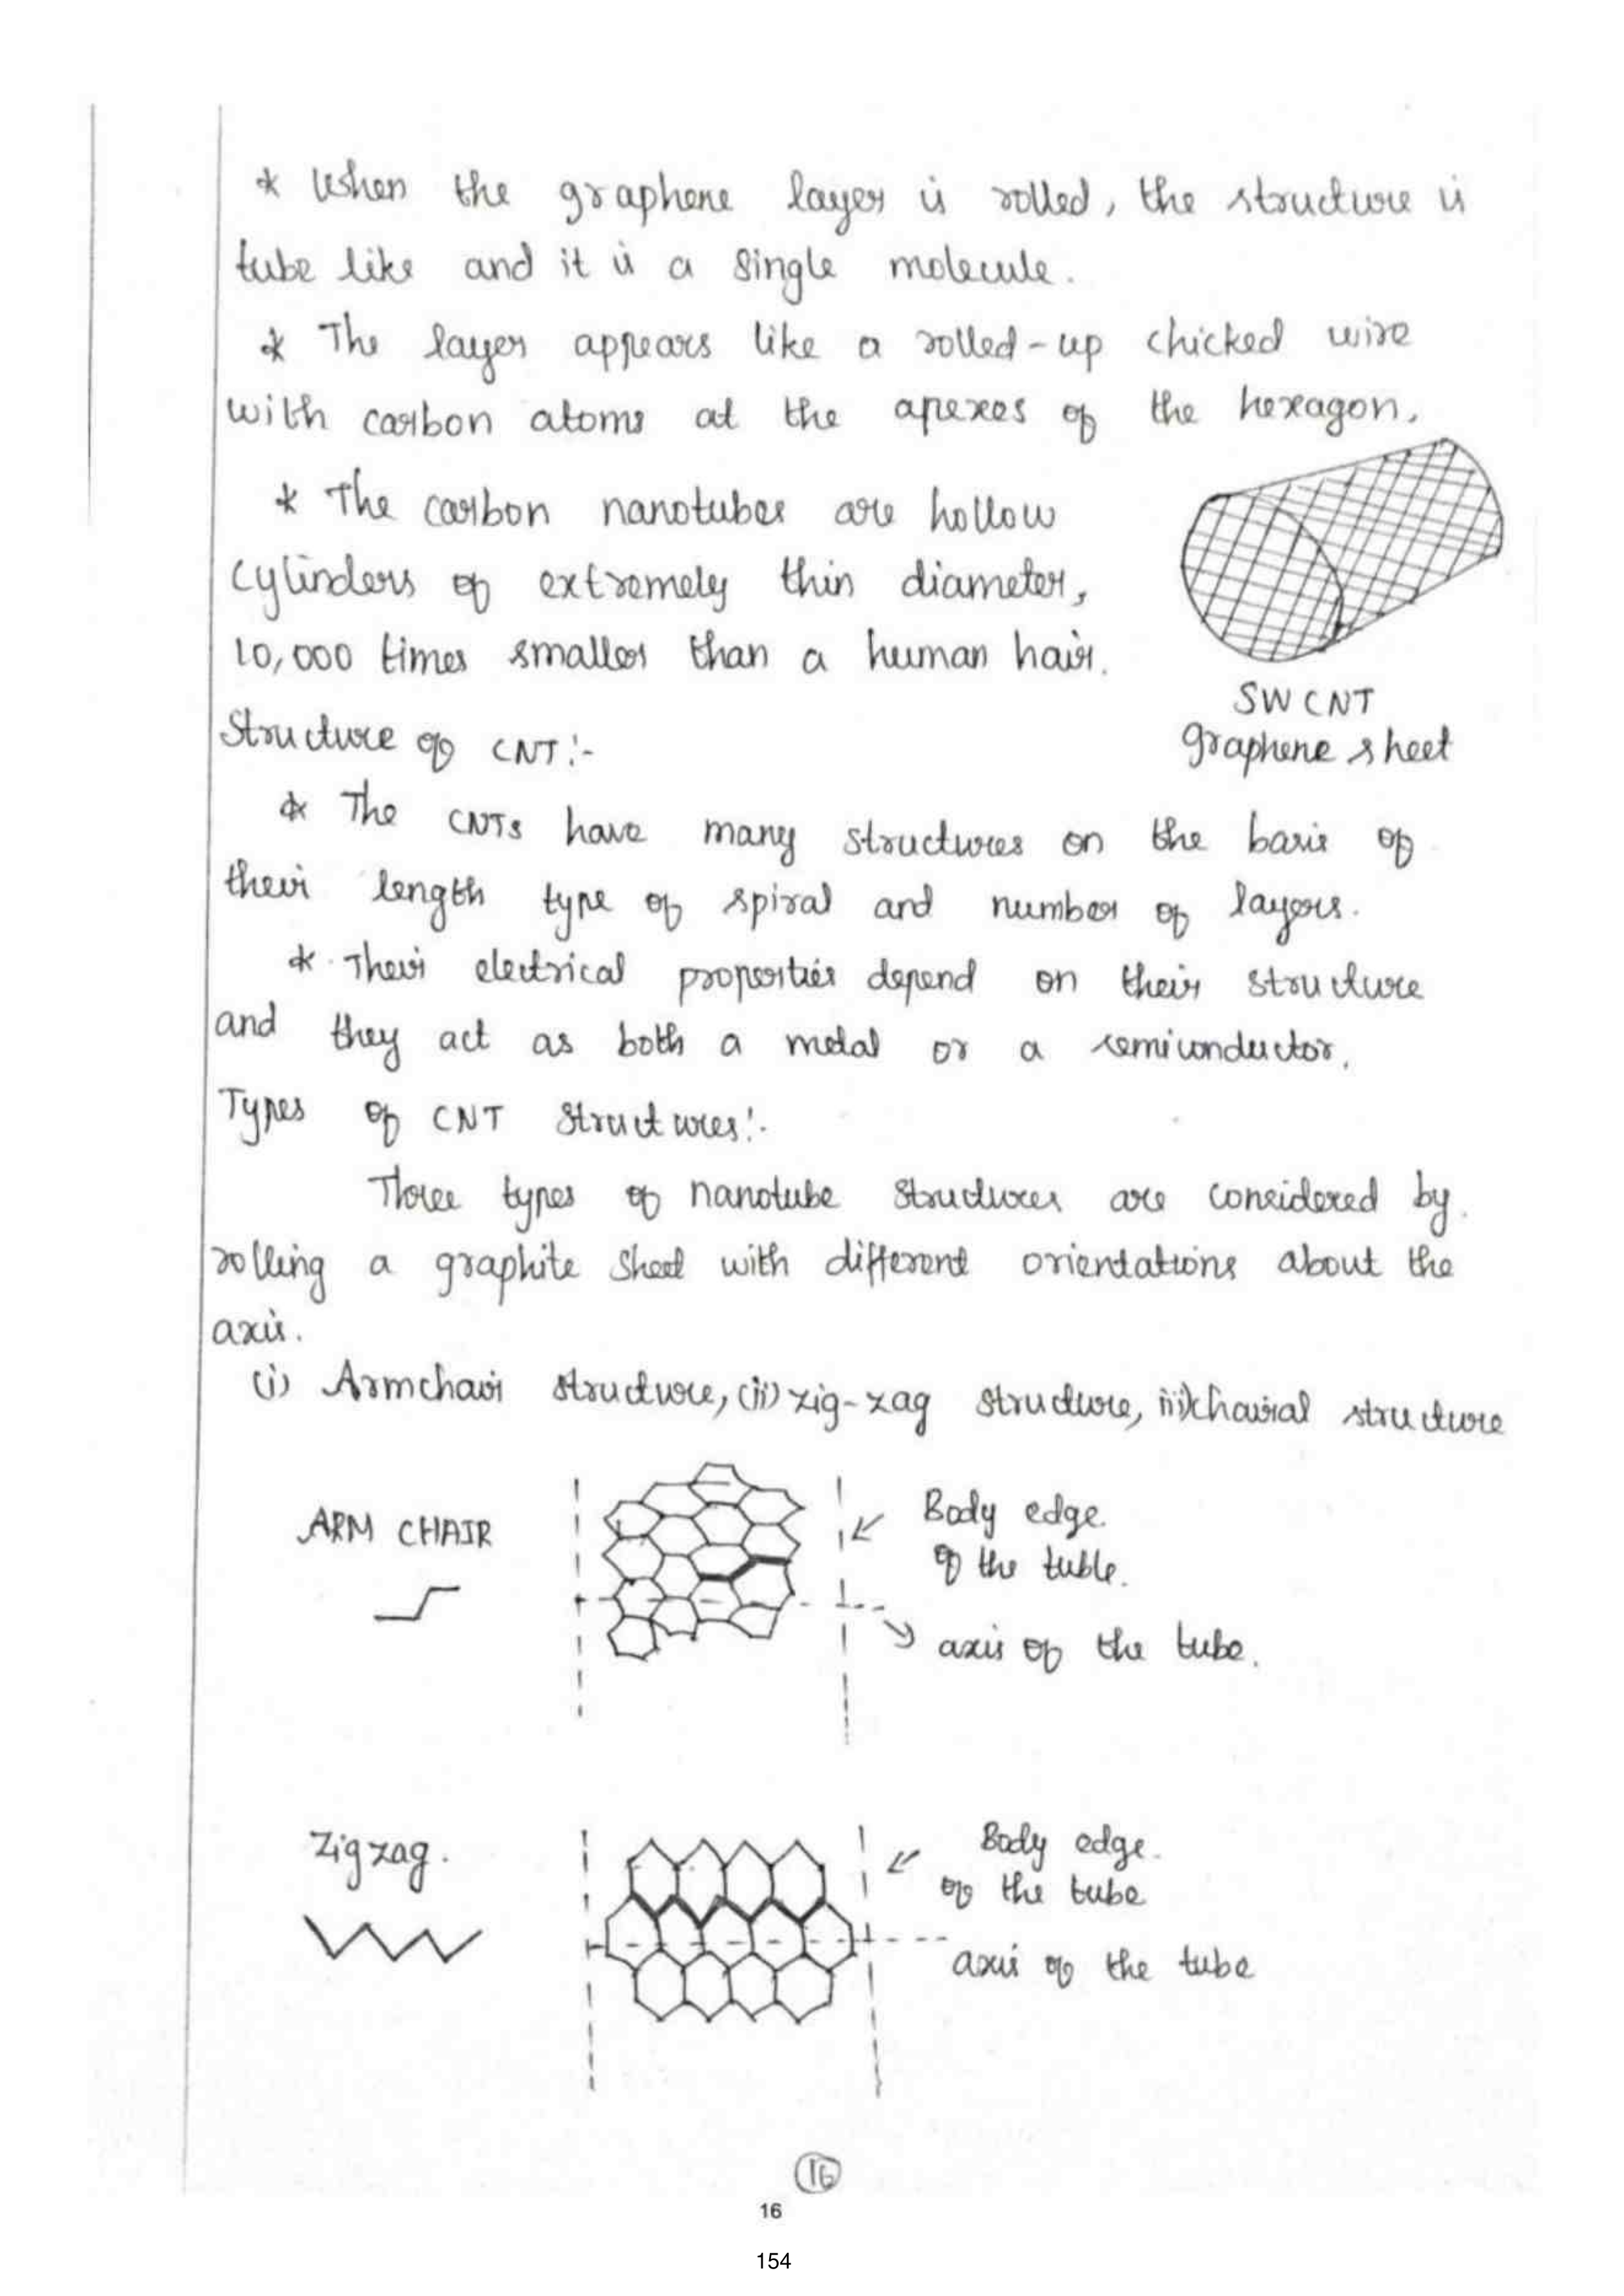 * When the graphene layer is rolled, the structure is
tube like and it is a single molecule.
* The layer appears like a rolled-up chicked wire
with carbon atoms at the apexes of the hexagon.
* The carbon nanotubes are hollow
cylinders of extremely thin diameter,
10,000 times smaller than a human hair.
SWCNT
graphene sheet
Structure of CNT:-
* The CNTs have many structures on the basis of
their length type of spiral and number of layers.
* Their electrical properties depend on their structure
and they act as both a metal or a semiconductor.
Types of CNT structures:-
Three types of nanotube structures are considered by
rolling a graphite sheet with different orientations about the
axis.
(i) Armchair structure, (ii) zig-zag structure, iii) chairal structure
ARM CHAIR
Body edge
of the tuble.
axis of the tube.
Zigzag.
Body edge
of the tube
axis of the tube
16
16
154